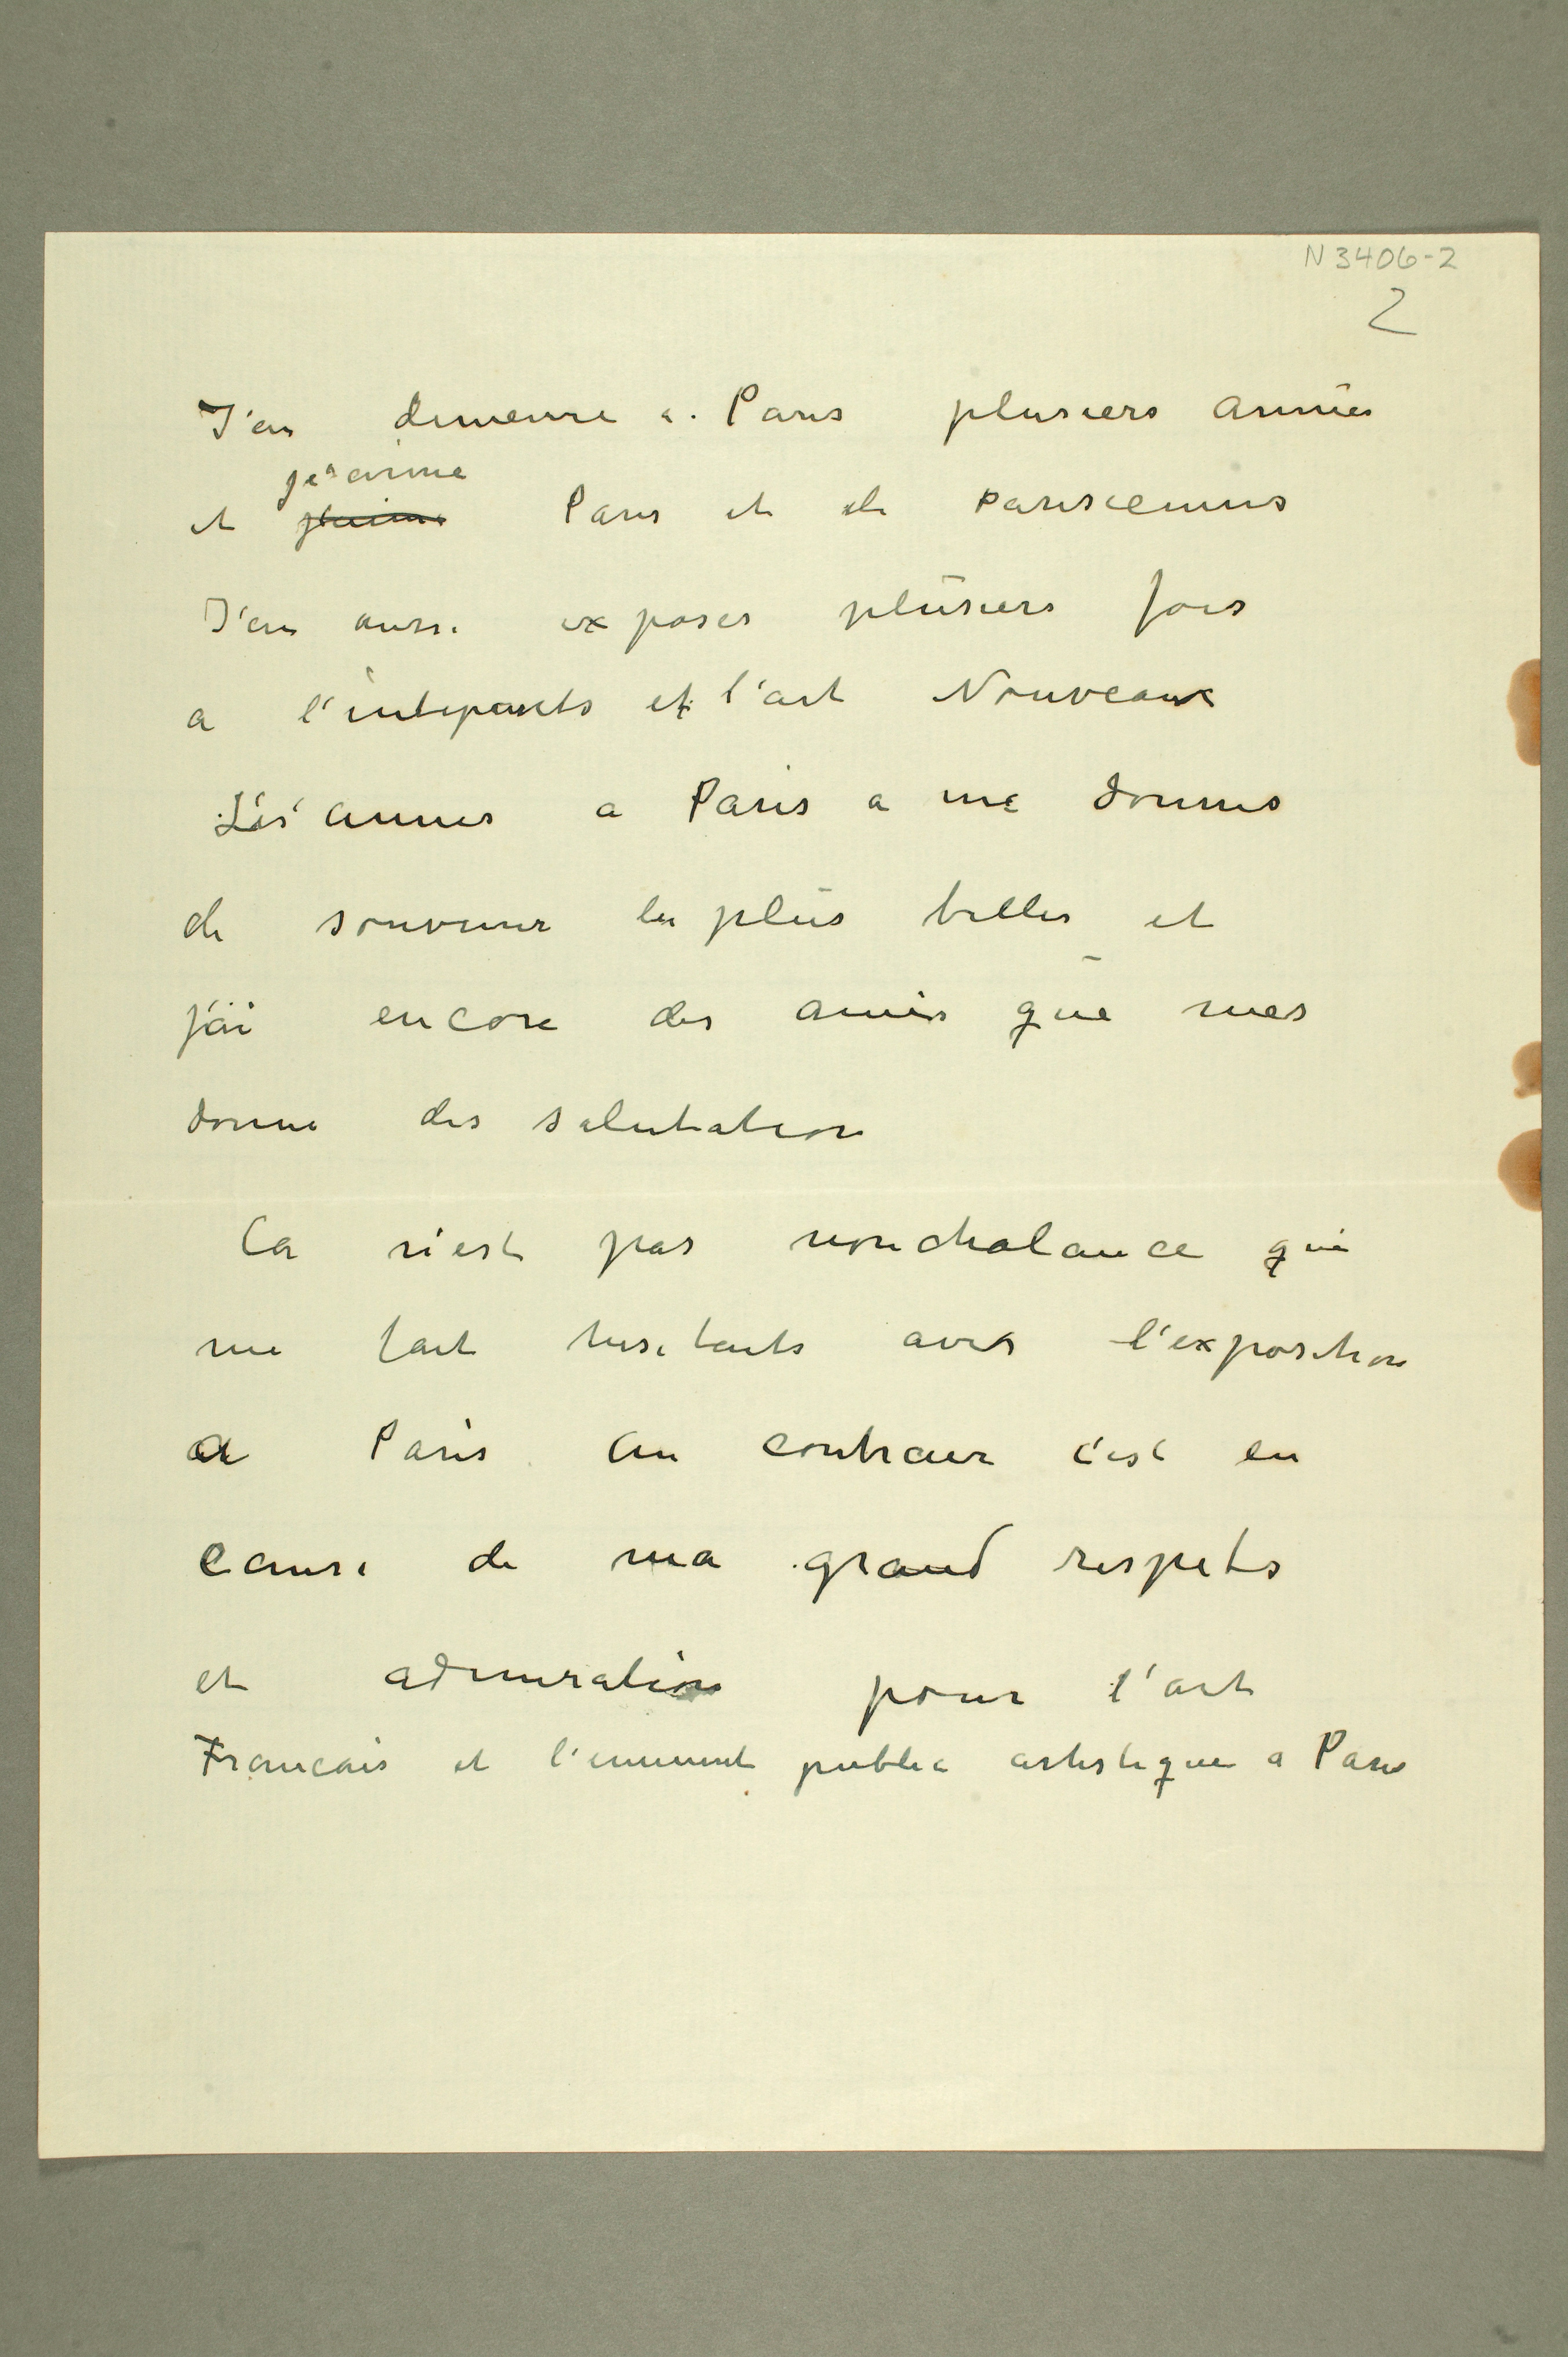 N3406-2
2
J'ai demeure a. Paris plusiers années
je'aime
et j'aime Paris et de Parisiennes
J'ai aussi exposes plusiers fois
a l'intepants et l'art Nouveaux
Les annes a Paris a me donnes
de souvenir les plus belles et
j'ai encore des amis que mes
donne des salutation
Ca n'est pas nonchalance qui
me fait hesitants aves l'exposition
a Paris. Au contraire c'est en
cause de ma grand respets
et admiration pour l'art
Francais et l'eminent public artistique a Paris